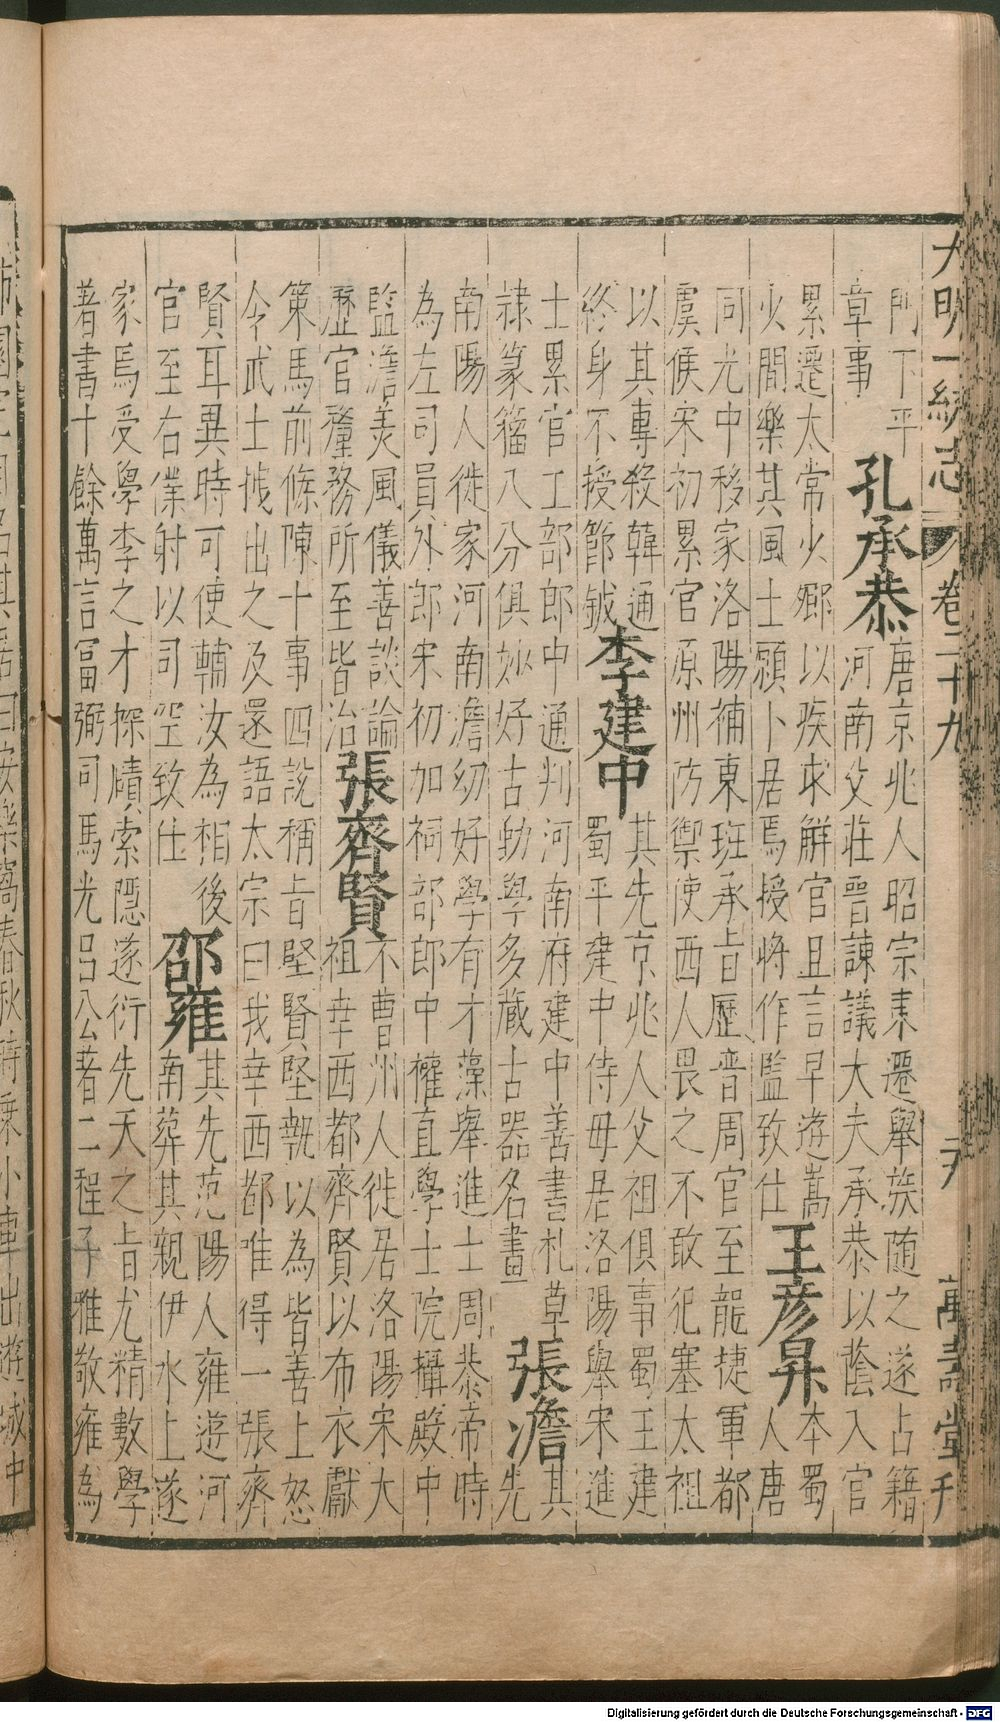 大明一統志 卷二十九 萬壽堂刋
門下平
章事
孔承恭
唐京兆人昭宗東遷舉族随之遂占籍
河南父莊晋諫議大夫承恭以蔭入官
累遷太常少卿以疾求解官且言早遊嵩
火間樂其風土願卜居焉授將作監致仕
王彦昇
本蜀
人唐
同光中移家洛陽補東班承旨歷晋周官至龍捷軍都
虞候宋初累官原州防禦使西人畏之不敢犯塞太祖
以其專殺韓通
終身不授節鉞
李建中
其先京兆人父祖俱事蜀王建
蜀平建中侍母居洛陽舉宋進
士累官工部郎中通判河南府建中善書札草
隷篆籀八分俱妙好古勤學多藏古器名畫
張澹
其
先
南陽人徙家河南澹幼好學有才藻舉進士周恭帝時
為左司員外郎宋初加祠部郎中權直學士院攝殿中
監澹美風儀善談論
歷官釐務所至皆治
張齊賢
不曹州人徙居洛陽宋大
祖幸西都齊賢以布衣獻
策馬前條陳十事四說稱旨堅賢堅執以為皆善上怒
令武士拽出之及還語太宗曰我幸西都惟得一張齊
賢耳異時可使輔汝為相後
官至右僕射以司空致仕
邵雍
其先范陽人雍遊河
南葬其親伊水上遂
家焉受學李之才探賾索隱遂衍先天之旨尤精數學
著書十餘萬言富弼司馬光呂公著二程子雅敬雍為
其居曰安樂窩春秋時乘小車出遊城中
Digitalisierung gefördert durch die Deutsche Forschungsgemeinschaft - DFG